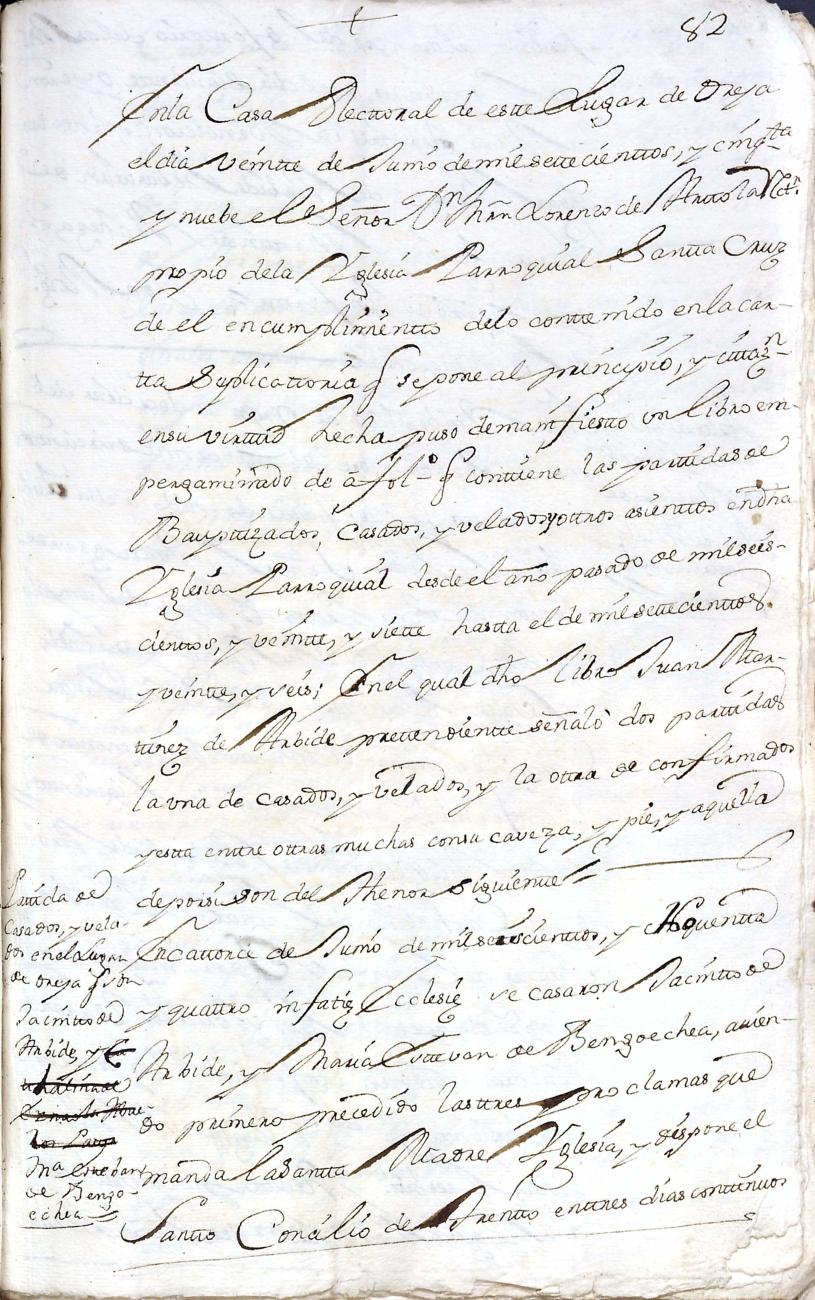 82
En la Casa Rectoral de este Lugar de Oreja
el dia veintte de Junio de mil settecienttos, y cinq.ta
y nuebe el Señor Dn Mrn Lorenzo de Arttola Rctr
propio dela Yglesia Parroquial Santta Cruz
de el en cumplimientto delo conttenido en la car-
tta Suplicattoria q se pone al principio, y cittaz.n
en su virttud hecha puso de manifiestto un libro em-
pergaminado de a fol.o q conttiene las parttidas de
Bauptizados, Casados, y velados y ottros asienttos en dha
Yglesia Parroquial desde el año pasado de mil seis-
cienttos, y veintte, y siette hastta el de mil settecienttos
y veintte, y seis; En el qual dho libro Juan Mar-
tinez de Arbide prettendientte señaló dos parttidas
la una de casados, y velados, y la ottra de confirmados
y estta enttre ottras muchas con su caveza, y pie, y aquella
de por si son del thenor siguientte
Partida de
Casados, y vela-
dos en el Lugar
de Oreja q son
Jacintto de
Arbide, y
Ma esteban
de Bengo-
echea
En cattorce de Junio de mil seiscienttos, y cinquentta
y quattro in fatiz Ecclesiz se casaron Jacintto de
Arbide, y Maria Estevan de Bengoechea, avien-
do primero precedido las ttres proclamas que
manda la Santta Madre Yglesia, y dispone el
Santto Concilio de Trentto en ttres dias conttinuos